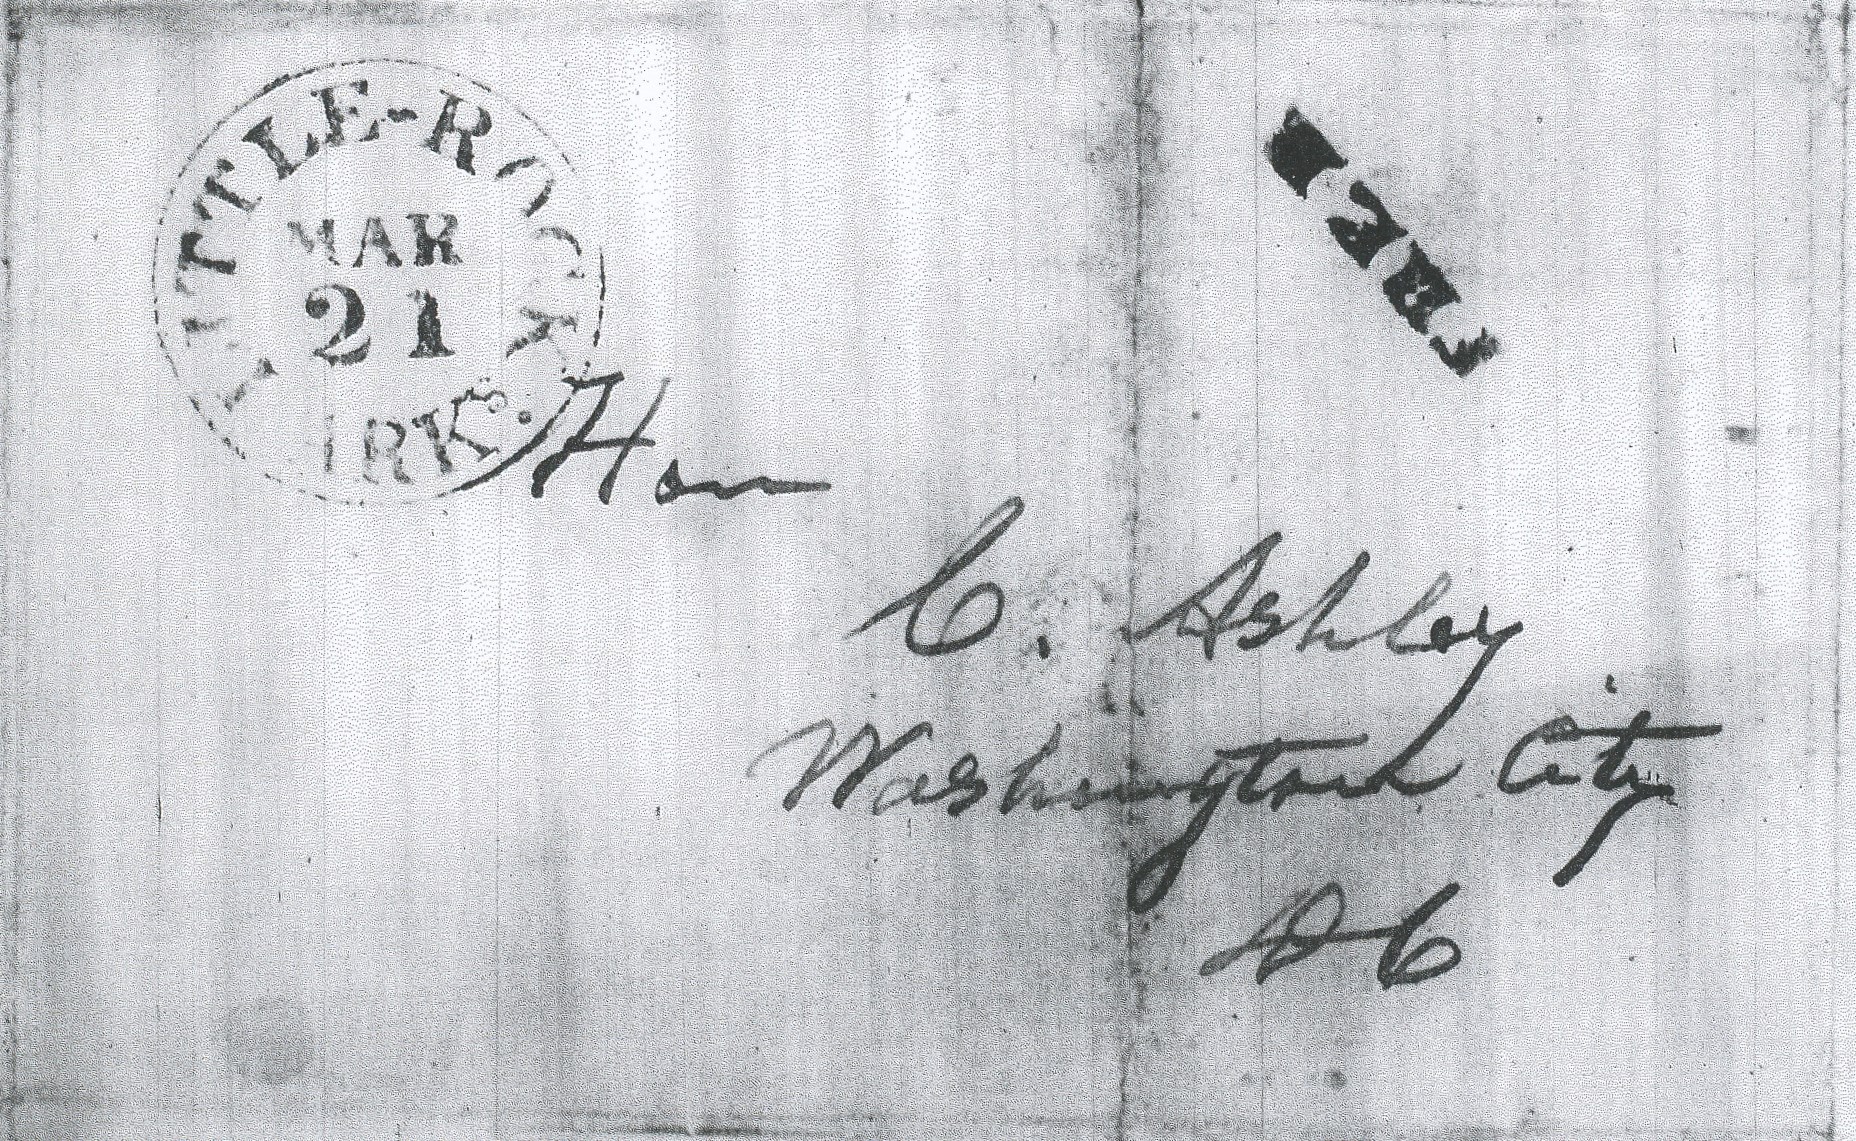 LITTLE-ROCK
MAR
21
ARKS.
FREE
Hon
C. Ashley
Washington City
DC